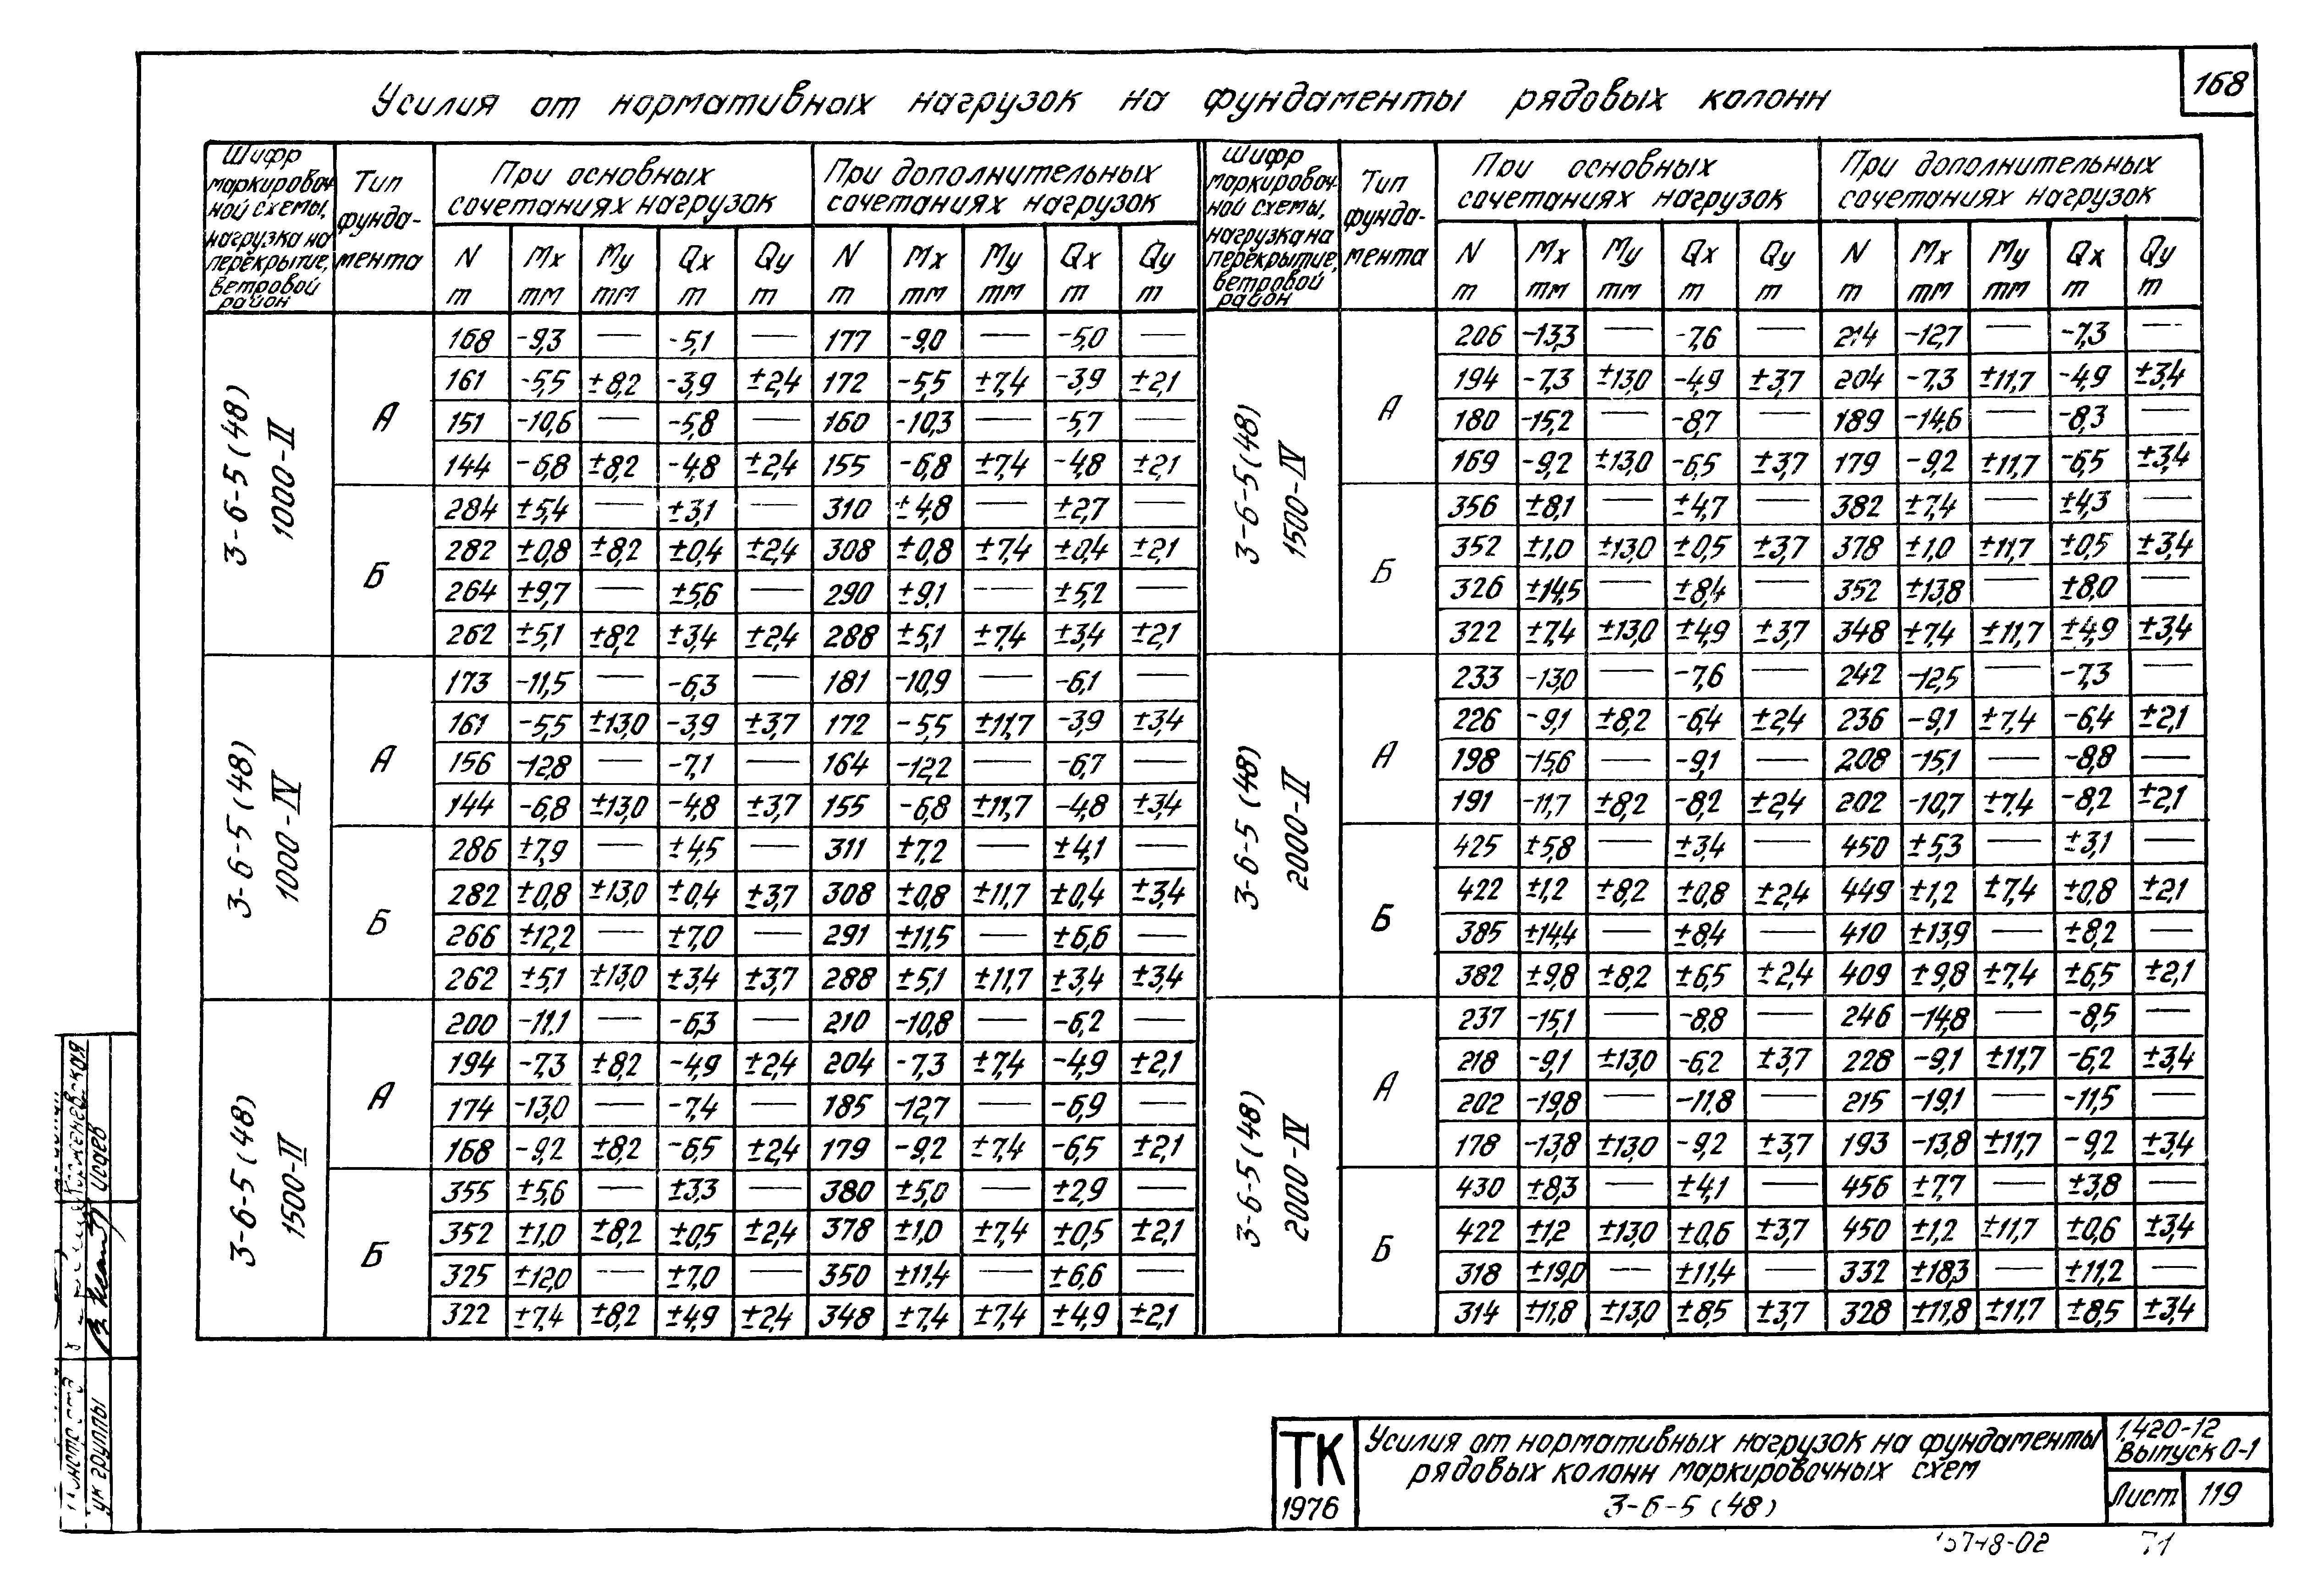 168
Усилия от нормативных нагрузок на фундаменты рядовых колонн
Шифр маркировоч-ной схемы, нагрузка на перекрытие, ветровой район | Тип фунда-мента | При основных сочетаниях нагрузок | При дополнительных сочетаниях нагрузок
N т | Mx тм | My тм | Qx т | Qy т | N т | Mx тм | My тм | Qx т | Qy т
3-6-5(48) 1000-II
А
168 -9,3 — -5,1 — 177 -9,0 — -5,0 —
161 -5,5 ±8,2 -3,9 ±2,4 172 -5,5 ±7,4 -3,9 ±2,1
151 -10,6 — -5,8 — 160 -10,3 — -5,7 —
144 -6,8 ±8,2 -4,8 ±2,4 155 -6,8 ±7,4 -4,8 ±2,1
Б
284 ±5,4 — ±3,1 — 310 ±4,8 — ±2,7 —
282 ±0,8 ±8,2 ±0,4 ±2,4 308 ±0,8 ±7,4 ±0,4 ±2,1
264 ±9,7 — ±5,6 — 290 ±9,1 — ±5,2 —
262 ±5,1 ±8,2 ±3,4 ±2,4 288 ±5,1 ±7,4 ±3,4 ±2,1
3-6-5(48) 1000-IV
А
173 -11,5 — -6,3 — 181 -10,9 — -6,1 —
161 -5,5 ±13,0 -3,9 ±3,7 172 -5,5 ±11,7 -3,9 ±3,4
156 -12,8 — -7,1 — 164 -12,2 — -6,7 —
144 -6,8 ±13,0 -4,8 ±3,7 155 -6,8 ±11,7 -4,8 ±3,4
Б
286 ±7,9 — ±4,5 — 311 ±7,2 — ±4,1 —
282 ±0,8 ±13,0 ±0,4 ±3,7 308 ±0,8 ±11,7 ±0,4 ±3,4
266 ±12,2 — ±7,0 — 291 ±11,5 — ±6,6 —
262 ±5,1 ±13,0 ±3,4 ±3,7 288 ±5,1 ±11,7 ±3,4 ±3,4
3-6-5(48) 1500-II
А
200 -11,1 — -6,3 — 210 -10,8 — -6,2 —
194 -7,3 ±8,2 -4,9 ±2,4 204 -7,3 ±7,4 -4,9 ±2,1
174 -13,0 — -7,4 — 185 -12,7 — -6,9 —
168 -9,2 ±8,2 -6,5 ±2,4 179 -9,2 ±7,4 -6,5 ±2,1
Б
355 ±5,6 — ±3,3 — 380 ±5,0 — ±2,9 —
352 ±1,0 ±8,2 ±0,5 ±2,4 378 ±1,0 ±7,4 ±0,5 ±2,1
325 ±12,0 — ±7,0 — 350 ±11,4 — ±6,6 —
322 ±7,4 ±8,2 ±4,9 ±2,4 348 ±7,4 ±7,4 ±4,9 ±2,1
Шифр маркировоч-ной схемы, нагрузка на перекрытие, ветровой район | Тип фунда-мента | При основных сочетаниях нагрузок | При дополнительных сочетаниях нагрузок
N т | Mx тм | My тм | Qx т | Qy т | N т | Mx тм | My тм | Qx т | Qy т
3-6-5(48) 1500-IV
А
206 -13,3 — -7,6 — 214 -12,7 — -7,3 —
194 -7,3 ±13,0 -4,9 ±3,7 204 -7,3 ±11,7 -4,9 ±3,4
180 -15,2 — -8,7 — 189 -14,6 — -8,3 —
169 -9,2 ±13,0 -6,5 ±3,7 179 -9,2 ±11,7 -6,5 ±3,4
Б
356 ±8,1 — ±4,7 — 382 ±7,4 — ±4,3 —
352 ±1,0 ±13,0 ±0,5 ±3,7 378 ±1,0 ±11,7 ±0,5 ±3,4
326 ±14,5 — ±8,4 — 352 ±13,8 — ±8,0 —
322 ±7,4 ±13,0 ±4,9 ±3,7 348 ±7,4 ±11,7 ±4,9 ±3,4
3-6-5(48) 2000-II
А
233 -13,0 — -7,6 — 242 -12,5 — -7,3 —
226 -9,1 ±8,2 -6,4 ±2,4 236 -9,1 ±7,4 -6,4 ±2,1
198 -15,6 — -9,1 — 208 -15,1 — -8,8 —
191 -11,7 ±8,2 -8,2 ±2,4 202 -10,7 ±7,4 -8,2 ±2,1
Б
425 ±5,8 — ±3,4 — 450 ±5,3 — ±3,1 —
422 ±1,2 ±8,2 ±0,8 ±2,4 449 ±1,2 ±7,4 ±0,8 ±2,1
385 ±14,4 — ±8,4 — 410 ±13,9 — ±8,2 —
382 ±9,8 ±8,2 ±6,5 ±2,4 409 ±9,8 ±7,4 ±6,5 ±2,1
3-6-5(48) 2000-IV
А
237 -15,1 — -8,8 — 246 -14,8 — -8,5 —
218 -9,1 ±13,0 -6,2 ±3,7 228 -9,1 ±11,7 -6,2 ±3,4
202 -19,8 — -11,8 — 215 -19,1 — -11,5 —
178 -13,8 ±13,0 -9,2 ±3,7 193 -13,8 ±11,7 -9,2 ±3,4
Б
430 ±8,3 — ±4,1 — 456 ±7,7 — ±3,8 —
422 ±1,2 ±13,0 ±0,6 ±3,7 450 ±1,2 ±11,7 ±0,6 ±3,4
318 ±19,0 — ±11,4 — 332 ±18,3 — ±11,2 —
314 ±11,8 ±13,0 ±8,5 ±3,7 328 ±11,8 ±11,7 ±8,5 ±3,4
ТК
1976
Усилия от нормативных нагрузок на фундаменты
рядовых колонн маркировочных схем
3-6-5(48)
1.420-12
Выпуск 0-1
Лист 119
71